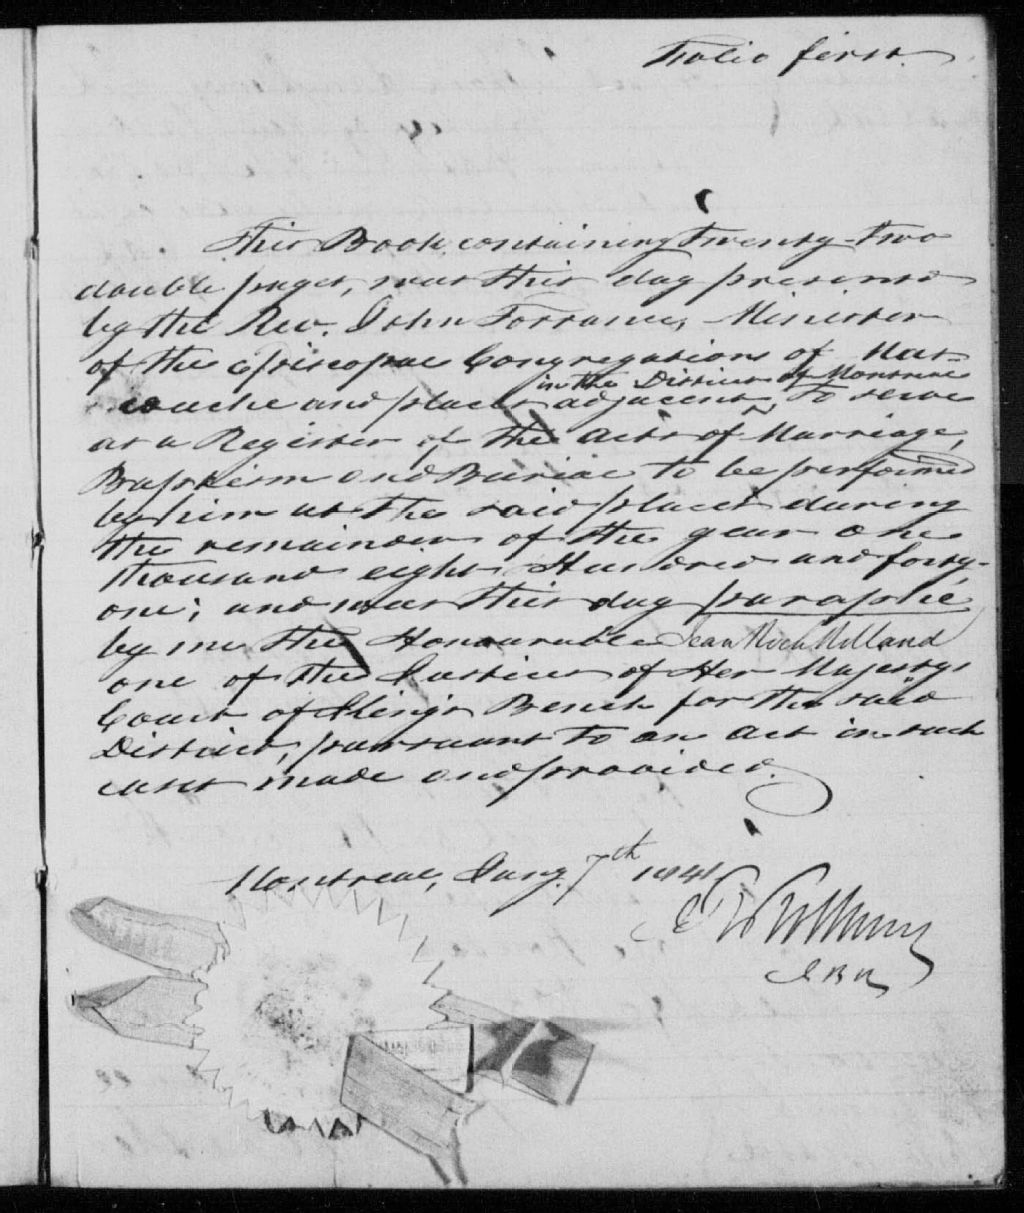 Folio first.
This Book containing twenty-two
double pages, was this day presented
by the Rev. John Torrance, Minister
of the Episcopal Congregations of Mas-
couche and places adjacent, in the District of Montreal to serve
as a Register of the Acts of Marriage,
Baptism and Burial to be performed
by him at the said places during
the remainder of the year one
thousand eight Hundred and forty-
one; and was this day paraphé
by me the Honourable Jean Roch Rolland
one of the Justices of Her Majesty's
Court of King's Bench for the said
District, pursuant to an Act in such
cases made and provided.
Montreal, Jany. 7th 1841
J R Rolland
J B R